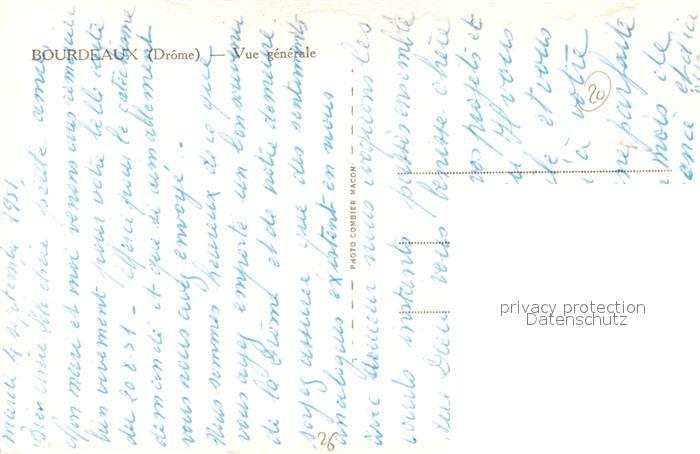 BOURDEAUX (Drôme) — Vue générale
PHOTO COMBIER MACON
mardi 4 septembre 1951,
Bien chère petite amie
Mon mari et moi venons vous remercier
bien vivement pour votre belle carte
du 20 8.51 - merci pour le
demandé et que si aimablement
vous nous avez envoyé.
Nous sommes heureux de ce que
vous ayez emporté un bon souvenir
de la Drôme et de notre demeure
soyez assurée que des sentiments
analogues existent en nous
avec douceur nous
courts instants passés ensemble
Que Dieu vous bénisse chère
vos projets et
vous
et vous
à votre
parfaite
mois de
20
26
privacy protection
Datenschutz